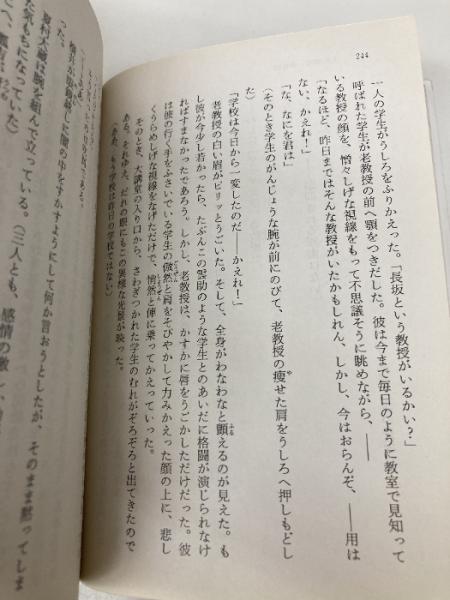 244
一人の学生がうしろをふりかえった。「長坂という教授がいるかい？」
呼ばれた学生が老教授の前へ顎をつきだした。彼は今まで毎日のように教室で見知って
いる教授の顔を、憎々しげな視線をもって不思議そうに眺めながら、――
「なるほど、昨日まではそんな教授がいたかもしれん、しかし、今はおらんぞ、――用は
ない、かえれ！」
「な、なにを君は」
（そのとき学生のがんじょうな腕が前にのびて、老教授の痩せた肩をうしろへ押しもどし
た）
「学校は今日から一変したのだ――かえれ！」
老教授の白い眉がピリッとうごいた。そして、全身がわなわなと顫えるのが見えた。も
し彼が今少し若かったら、たぶんこの架助のような学生とのあいだに格闘が演じられなけ
ればすまなかったであろう。しかし、かすかに唇をうごかしただけだった。彼
は彼の行く手をふさいでいる学生の傲然と肩をそびやかして力みかえった顔の上に、悲し
くうらめしげな視線をなげただけで、悄然と俥に乗ってかえっていった。
そのとき、大講堂の入り口から、さわぎつかれた学生のむれがぞろぞろと出てきたので
ある。それがえ、だれの眼にもこの異様な光景が映った。
（ああ、もう学校は昨日の学校ではない）
った。
夏村大蔵は腕を組んで立っている。（三人とも、感情の激
た気もちになっていた）